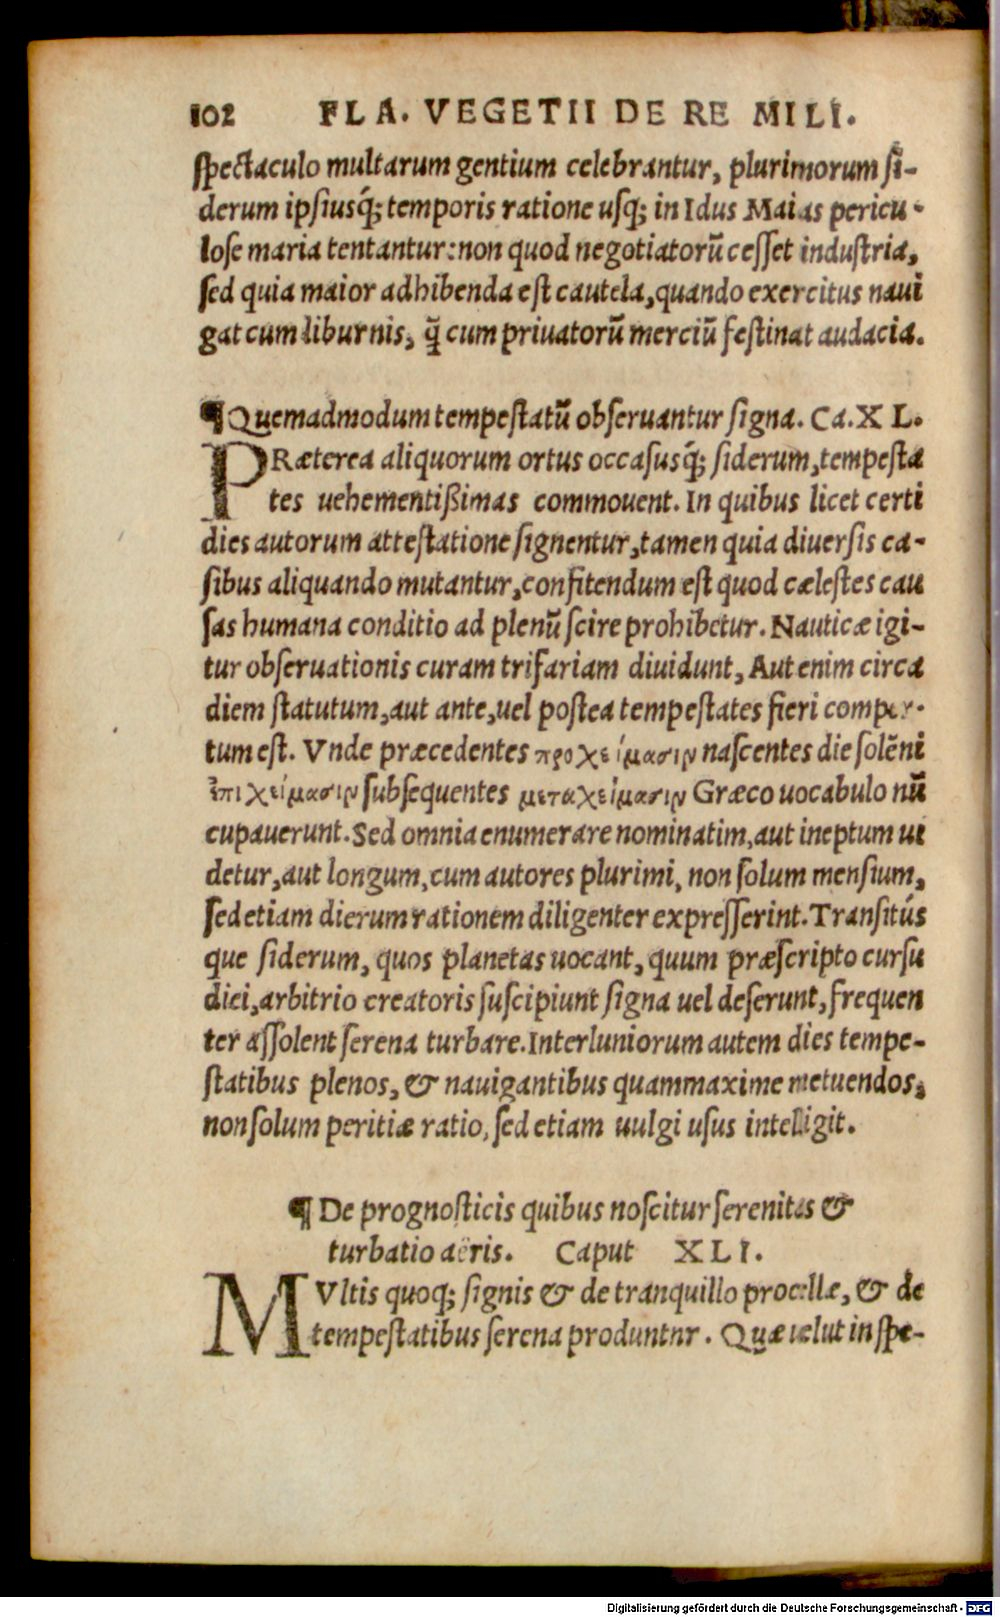 102 FLA. VEGETII DE RE MILI.
spectaculo multarum gentium celebrantur, plurimorum si-
derum ipsiusq́; temporis ratione usq; in Idus Maias pericu-
lose maria tentantur: non quod negotiatorũ cesset industria,
sed quia maior adhibenda est cautela, quando exercitus naui
gat cum liburnis, q̃ cum priuatorũ merciũ festinat audacia.
¶ Quemadmodum tempestatũ obseruantur signa. Ca. XL.
PRæterea aliquorum ortus occasusq́; siderum, tempesta
tes uehementißimas commouent. In quibus licet certi
dies autorum attestatione signentur, tamen quia diuersis ca-
sibus aliquando mutantur, confitendum est quod cælestes cau
sas humana conditio ad plenũ scire prohibetur. Nauticæ igi-
tur obseruationis curam trifariam diuidunt, Aut enim circa
diem statutum, aut ante, uel postea tempestates fieri comper-
tum est. Vnde præcedentes προχείμασιν nascentes die solẽni
ἐπιχείμασιν subsequentes μεταχείμασιν Græco uocabulo nũ
cupauerunt. Sed omnia enumerare nominatim, aut ineptum ui
detur, aut longum, cum autores plurimi, non solum mensium,
sed etiam dierum rationem diligenter expresserint. Transitús
que siderum, quos planetas uocant, quum præscripto cursu
diei, arbitrio creatoris suscipiunt signa uel deserunt, frequen
ter assolent serena turbare. Interluniorum autem dies tempe-
statibus plenos, & nauigantibus quammaxime metuendos,
non solum peritiæ ratio, sed etiam uulgi usus intelligit.
¶ De prognosticis quibus noscitur serenitas &
turbatio aëris. Caput XLI.
MVltis quoq; signis & de tranquillo procellæ, & de
tempestatibus serena produntnr. Quæ uelut in spe-
Digitalisierung gefördert durch die Deutsche Forschungsgemeinschaft - DFG